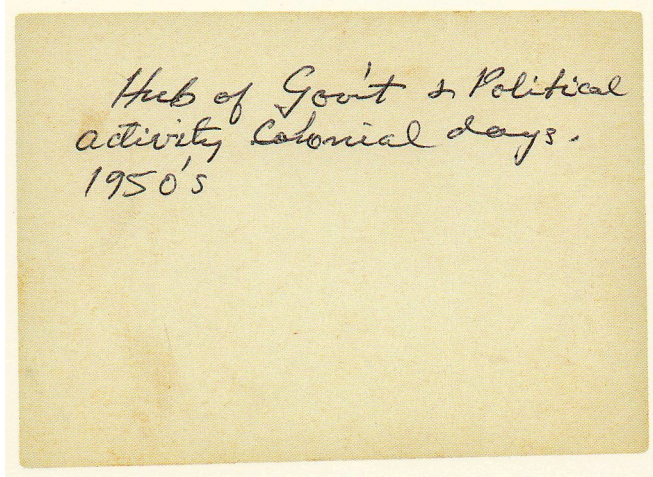 Hub of Gov't & Political
activity Colonial days.
1950's